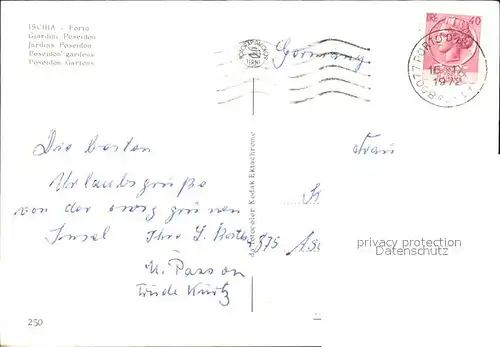 ISCHIA - Forio
Giardini Poseidon
Jardins Poseidon
Poseidon gardens
Poseidon Gärten
Germany
LIRE 40
80077 PORTO D'
16 - IX
1972
Die besten
Urlaubsgrüße
von der ewig grünen
Insel Ihre
u.
Trude Kurtz
Frau
875
da fotocolor Kodak Ektachrome
privacy protection
Datenschutz
250